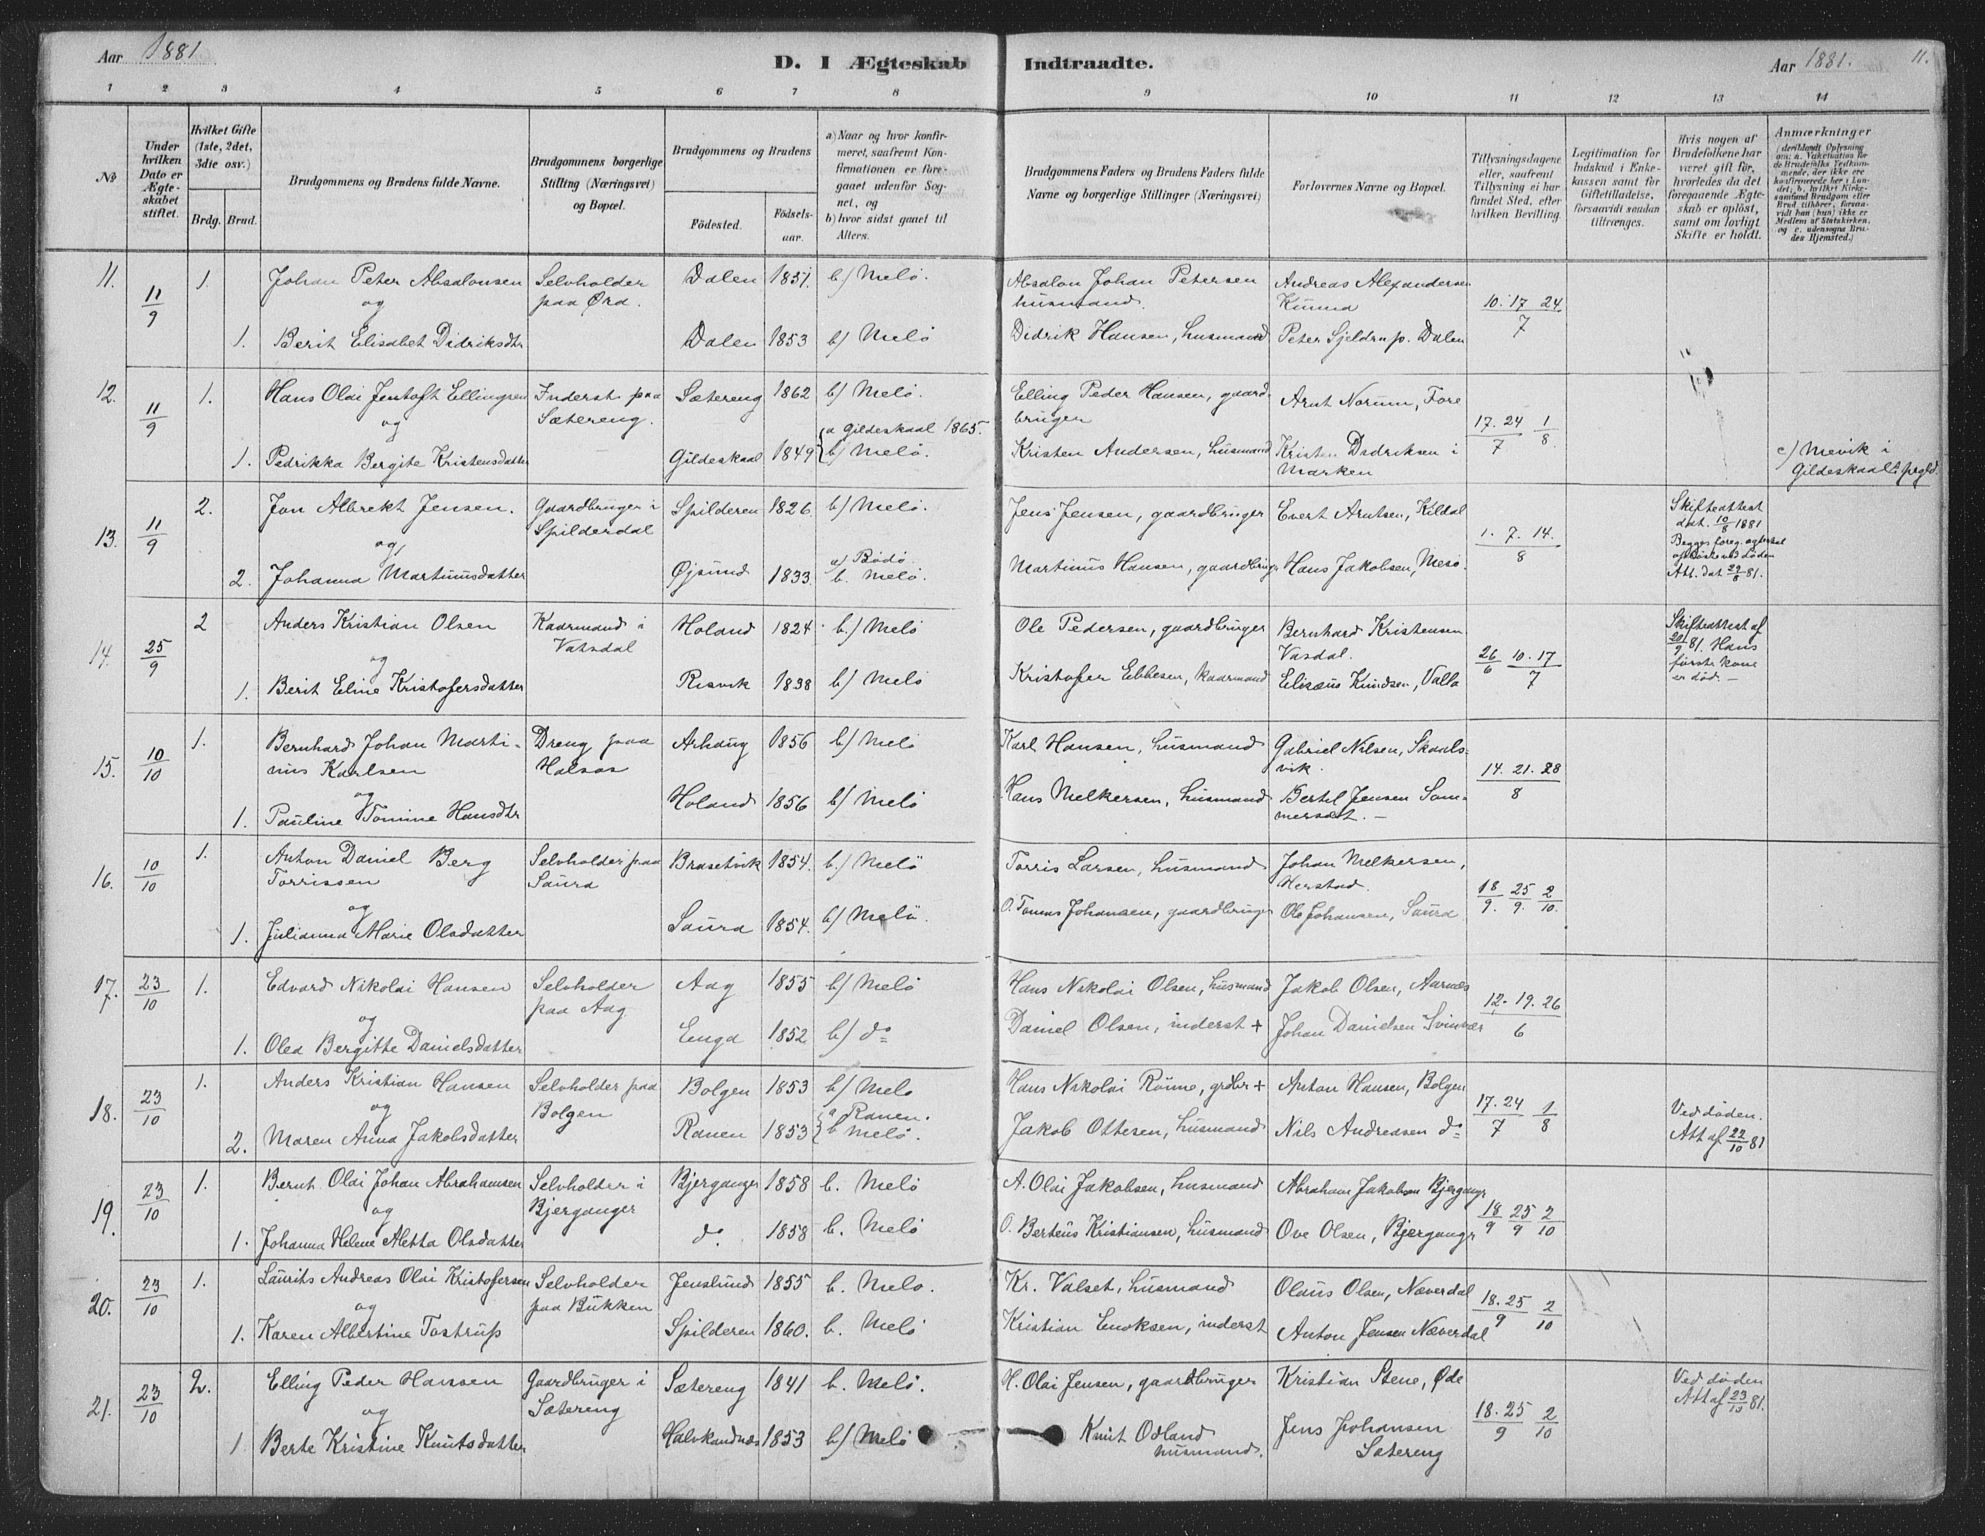 Aar 1881. D. I Ægteskab Indtraadte. Aar 1881. 11.
1 2 3 4 5 6 7 8 9 10 11 12 13 14
No
Under hvilken Dato er Ægteskabet stiftet.
Hvilket Gifte (1ste, 2det, 3die osv.)
Brdg. Brud.
Brudgommens og Brudens fulde Navne.
Brudgommens borgerlige Stilling (Næringsvei) og Bopæl.
Brudgommens og Brudens
Födested. Födsels-aar.
a) Naar og hvor konfirmeret, saafremt Konfirmationen er foregaaet udenfor Sognet, og
b) hvor sidst gaaet til Alters.
Brudgommens Faders og Brudens Faders fulde Navne og borgerlige Stillinger (Næringsvei)
Forlovernes Navne og Bopæl.
Tillysningsdagene eller, saafremt Tillysning ei har fundet Sted, efter hvilken Bevilling.
Legitimation for Indskud i Enkekassen samt for Giftetilladelse, forsaavidt saadan tiltrænges.
Hvis nogen af Brudefolkene har været gift før, hvorledes da det foregaaende Ægteskab er oplöst, samt om lovligt Skifte er holdt.
Anmærkninger (deriblandt Oplysning om: a. Vaksination for de Brudefolks Vedkommende, der ikke ere konfirmerede her i Landet; b. hvilket Kirkesamfund Brudgom eller Brud tilhører, forsaavidt han (hun) ikke er Medlem af Statskirken, og c. udensogns Brudes Hjemsted.)
11. 11/9 1. Johan Peter Absalonsen Selvholder paa Ørd. Dalen 1851. b/ Melö. Absalon Johan Petersen husmand. Andreas Alexandersen Kunna 10. 17 24/7
og
1. Berit Elisabet Didriksdtr Dalen 1853 b/ Melö Didrik Hansen, husmand Peter Sjeldrup. Dalen
12. 11/9 1. Hans Olai Jentoft Ellingsen Inderst paa Sætereng. Sætereng 1862 b/ Melö. Elling Peder Hansen, gaardbruger Arnt Norum, Fore 17. 24/7 1/8.
og
1. Pedrikka Bergite Kristensdatter Gildeskaal 1849 a Gildeskaal 1865. b/ Melö. Kristen Andersen, husmand Kristen Didriksen i Marken c) Mevik i Gildeskaal prgld.
13. 11/9 2. Jon Albrekt Jensen. Gaardbruger i Spilderdal Spilderen 1826 b/ Melö. Jens Jensen, gaardbruger Evert Arntsen, Kildal 1. 7. 14./8 Skifteattest dat. 10/8 1881
og
2. Johanna Martinusdatter Øjsund 1833. a) Bödö. b. Melö. Martinus Hansen, gaardbruger Hans Jakobsen, Mesö. Att. dat 29/8 81.
14. 25/9 2 Anders Kristian Olsen Kaarmand i Vatsdal Holand 1824. b./ Melö Ole Pedersen, gaardbruger Bernhard Kristensen Vasdal. 26/6 10. 17/7 Skifteattest af 20/9 81. Hans første kone er död. —
og
1. Berit Eline Kristofersdatter Risvik 1838 b/ Melö Kristofer Ebbesen, kaarmand Elisæus Knudsen, Valla
15. 10/10 1. Bernhard Johan Martinus Karlsen Dreng paa Halsas Arhaug 1856 b/ Melö Karl Hansen, husmand Gabriel Nilsen, Skaalsvik. 14. 21. 28/8
og
1. Pauline Tomine Hansdtr Holand 1856 b/ Melö Hans Melkersen, husmand Bertil Jensen Sommersæt. —
16. 10/10 1. Anton Daniel Berg Torrissen Selvholder paa Saura Brasetvik 1854. b./ Melö Torris Larsen, husmand Johan Melkersen, Herstad. 18/9. 25/9. 2/10.
og
1. Julianna Marie Olsdatter Saura 1854. b/ Melö. O. Tomas Johansen, gaardbruger Ole Johansen, Saura
17. 23/10 1. Edvard Nikolai Hansen Selvholder paa Aag Aag 1855 b/ Melö Hans Nikolai Olsen, husmand Jakob Olsen, Aarnæs 12. 19. 26/6
og
1. Olea Bergitte Danielsdatter Enga 1852 b/ do Daniel Olsen, inderst + Johan Danielsen Svinvær
18. 23/10 1. Anders Kristian Hansen Selvholder paa Bolgen Bolgen 1853 b/ Melö Hans Nikolai Rönne, grdbr + Anton Hansen, Bolgen 17. 24/7 1/8 Ved döden. Att af 22/10 81
og
2. Maren Anna Jakobsdatter Ranen 1853 a Ranen. b Melö. Jakob Ottesen, husmand Nils Andreasen do
19. 23/10 1. Bernt. Olai Johan Abrahamsen Selvholder i Bjerganger Bjerganger 1858 b. Melö A. Olai Jakobsen, husmand Abraham Jakobsen Bjergangr 18/9 25/9 2/10
og
1. Johanna Helene Aletta Olsdatter do. 1858 b. Melö O. Bertëus Kristiansen, husmand Ove Olsen, Bjergangr
20. 23/10 1. Laurits Andreas Olai Kristofersen Selvholder paa Bukken Jenslund 1855 b. Melö. Kr. Valset, husmand Olaus Olsen, Næverdal 18. 25/9 2/10
og
1. Karen Albertine Tostrup Spilderen 1860. b. Melö Kristian Enoksen, inderst Anton Jensen Næverdal
21. 23/10 2. Elling Peder Hansen Gaardbruger i Sætereng Sætereng 1841 b. Melö. H. Olai Jensen, gaardbruger Kristian Stene, Øde 18. 25/9 2/10 Ved döden Att af 23/10 81.
og
1. Berte Kristine Knutsdatter Halvkandnæs 1853 b/ Melö Knut Odland husmand. Jens Johansen Sætereng